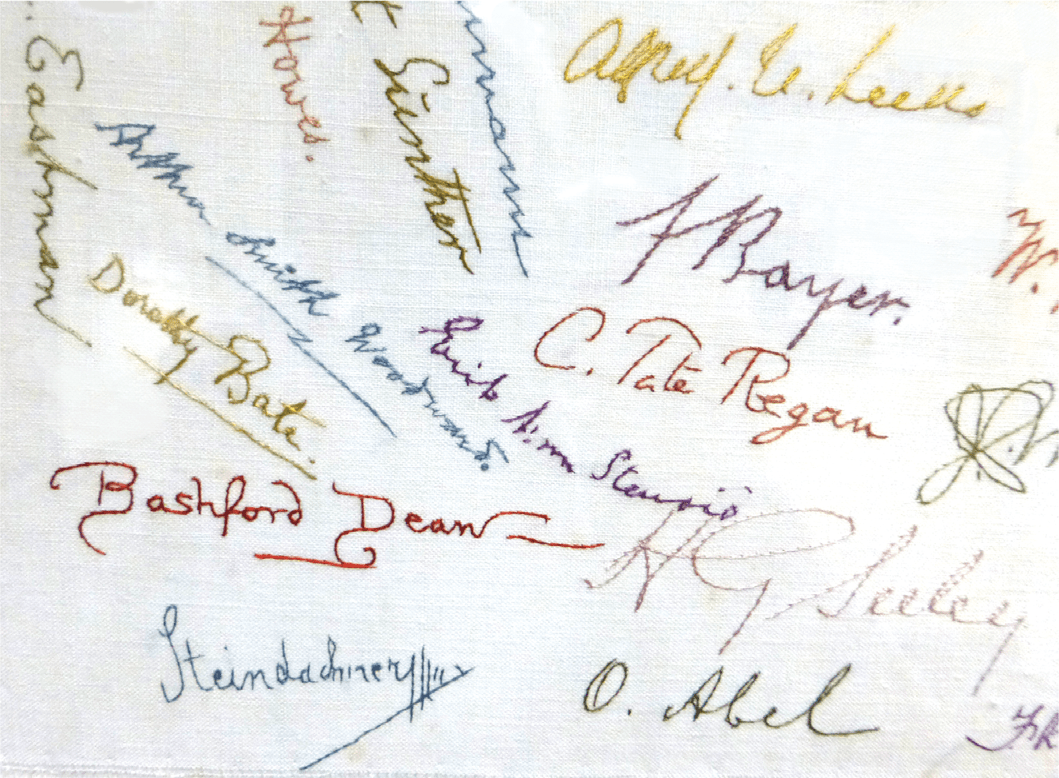 Eastman
Howes.
t Günther
mann
Alfred. N. Leeds
Arthur Smith Woodward.
F Bayer.
W.
Dorothy Bate.
Erik Ann Stensiö
C. Tate Regan
Bashford Dean
H G Seeley
Steindachner
O. Abel